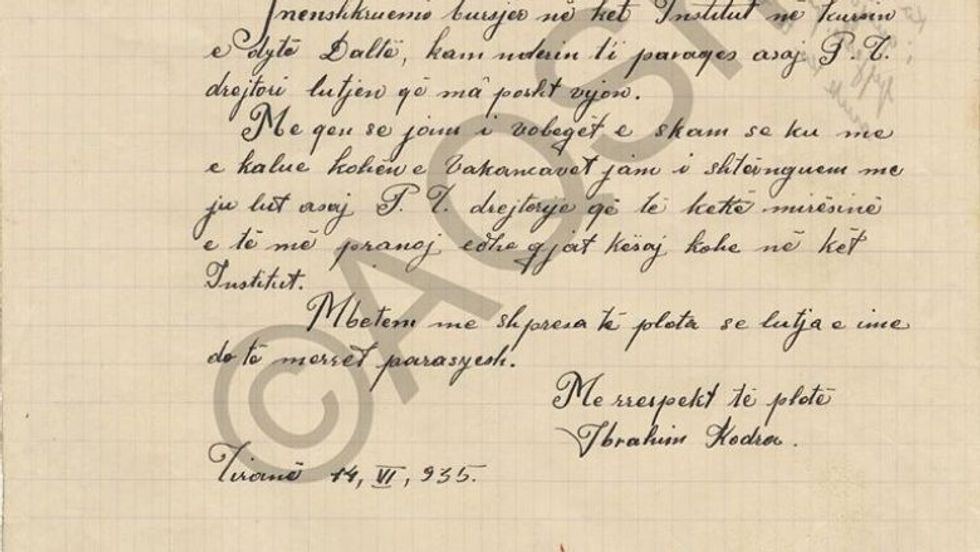 Jnenshkruemi bursjer në ket Institut në kursin
e dytë Daltë, kam nderin t'i parages asaj P. T.
drejtori lutjen që mâ posht vijon.
Me qen se jam i vobegët e skam se ku me
e kalue kohën e Vakancavet jam i shtërnguem me
ju lut asaj P. T. drejtorije që të ketë mirësinë
e të më pranoj edhe gjat kësaj kohe në kët
Institut.
Mbetem me shpresa të plota se lutja e ime
do të merret parasyesh.
Me rrespekt të plotë
Ibrahim Kodra.
Tiranë 14, VI, 935.
©AQSH